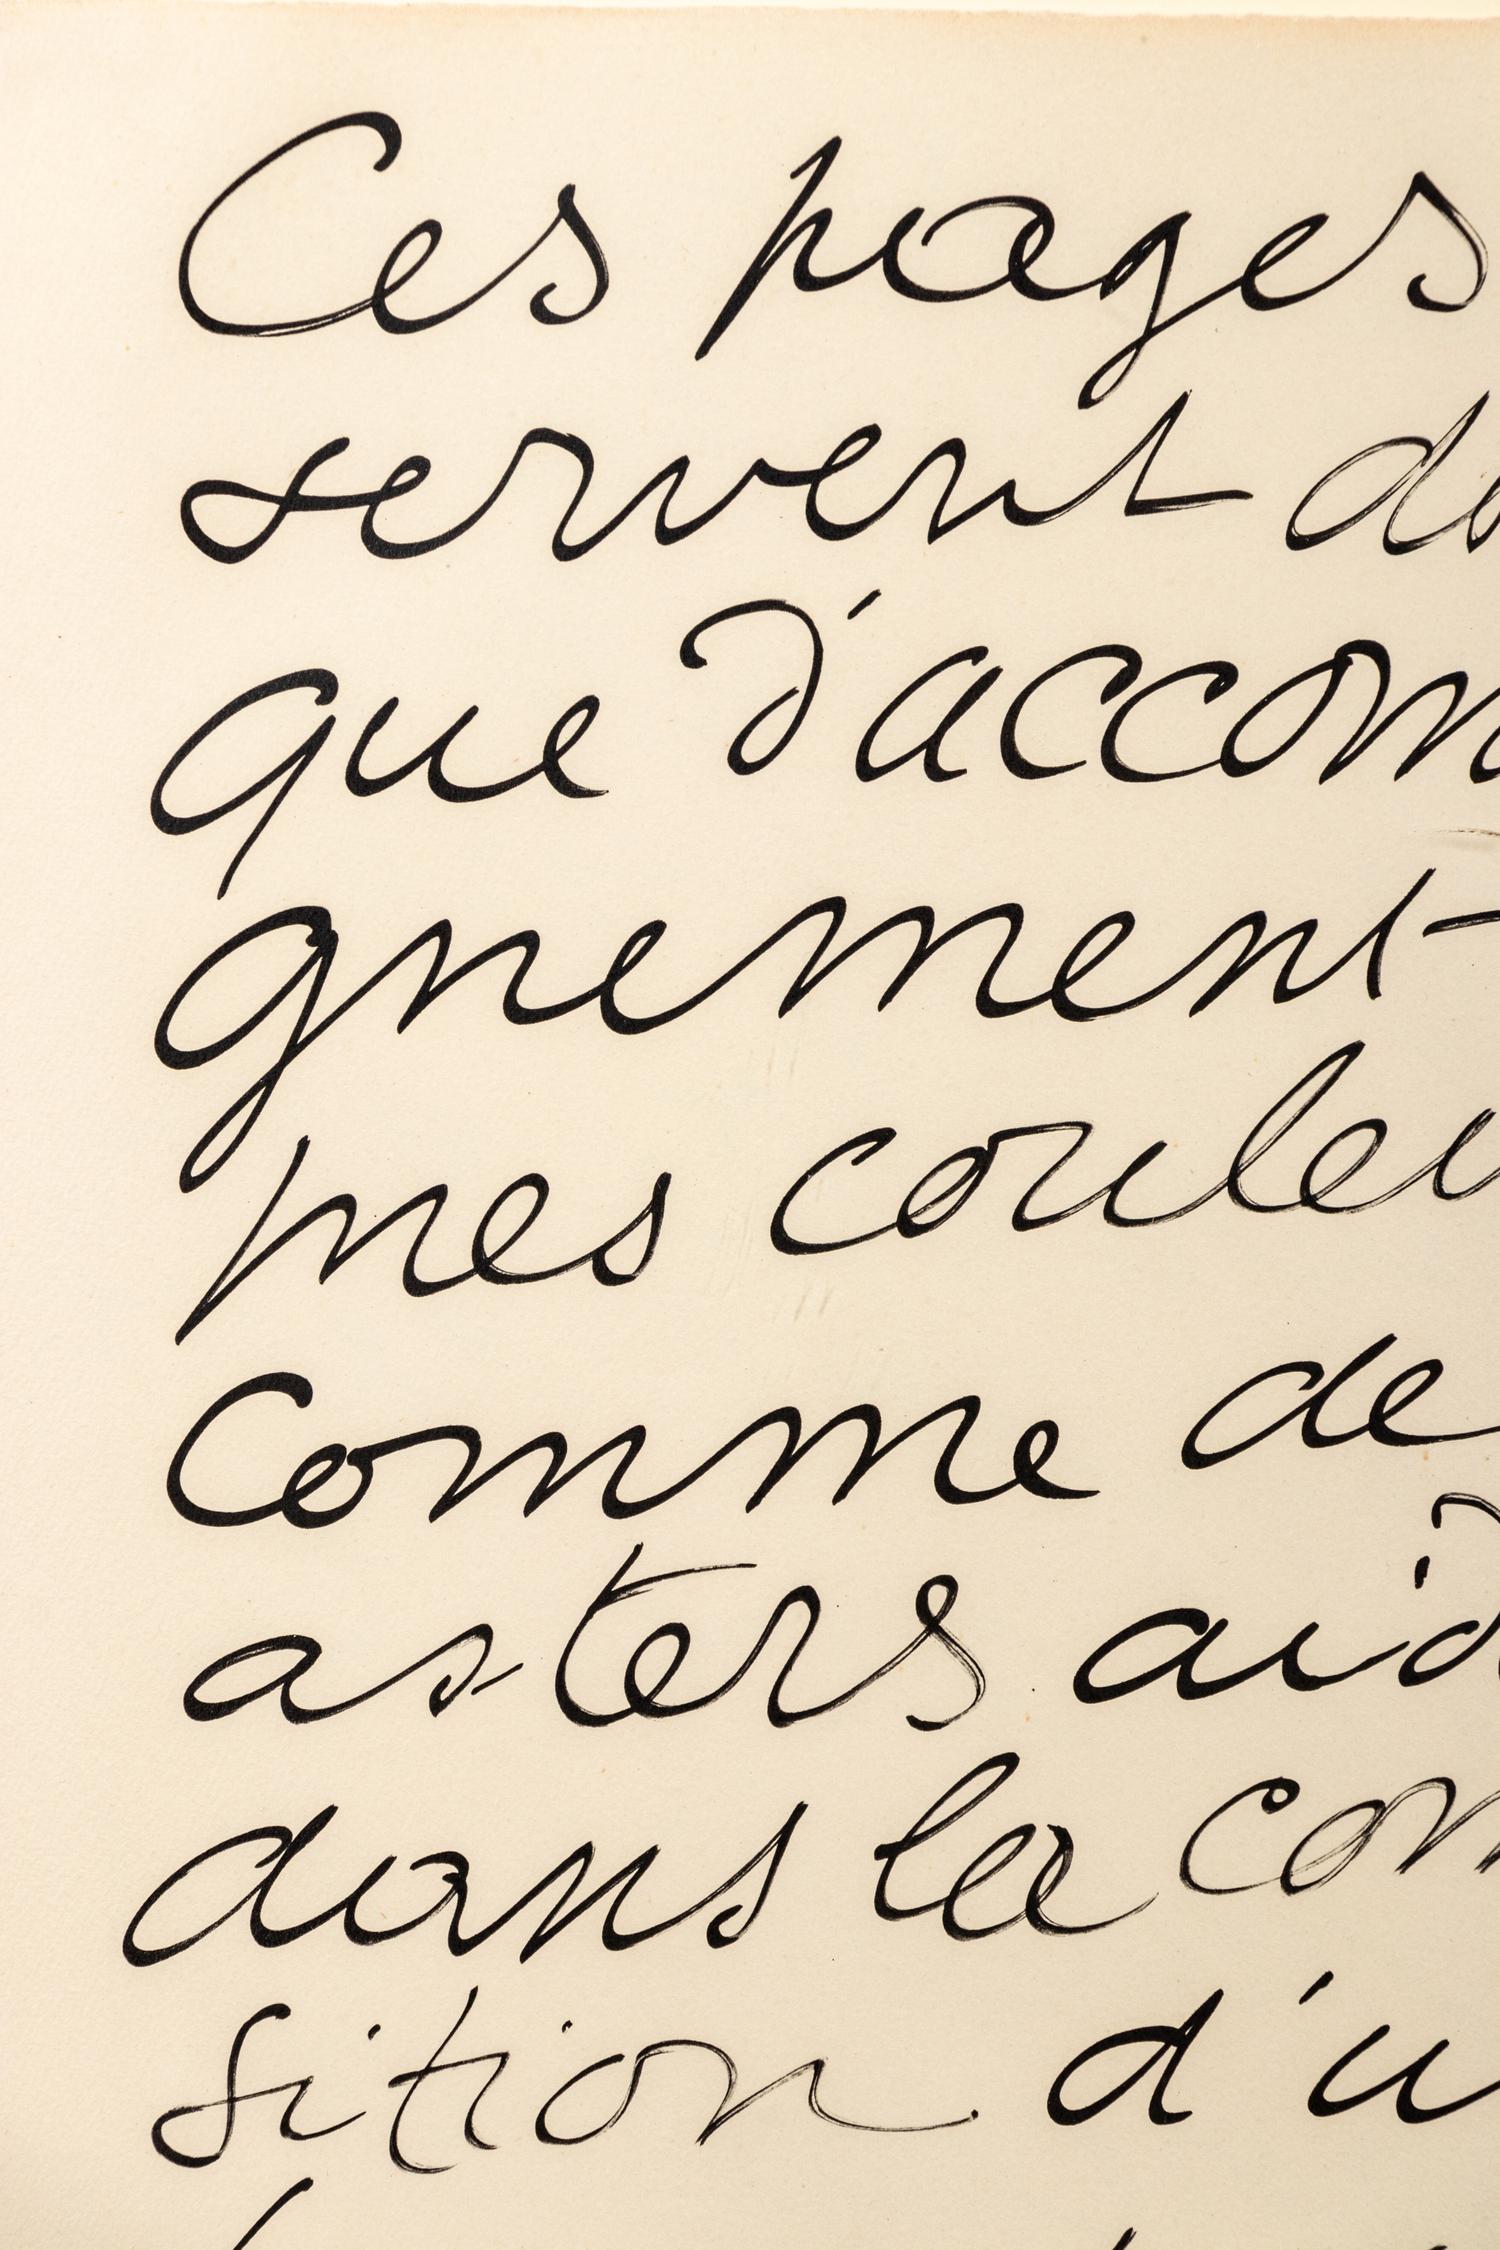 Ces pages
servent do
que d'accom
gnement
mes couleu
Comme de
asters aid
dans la com
sition d'u